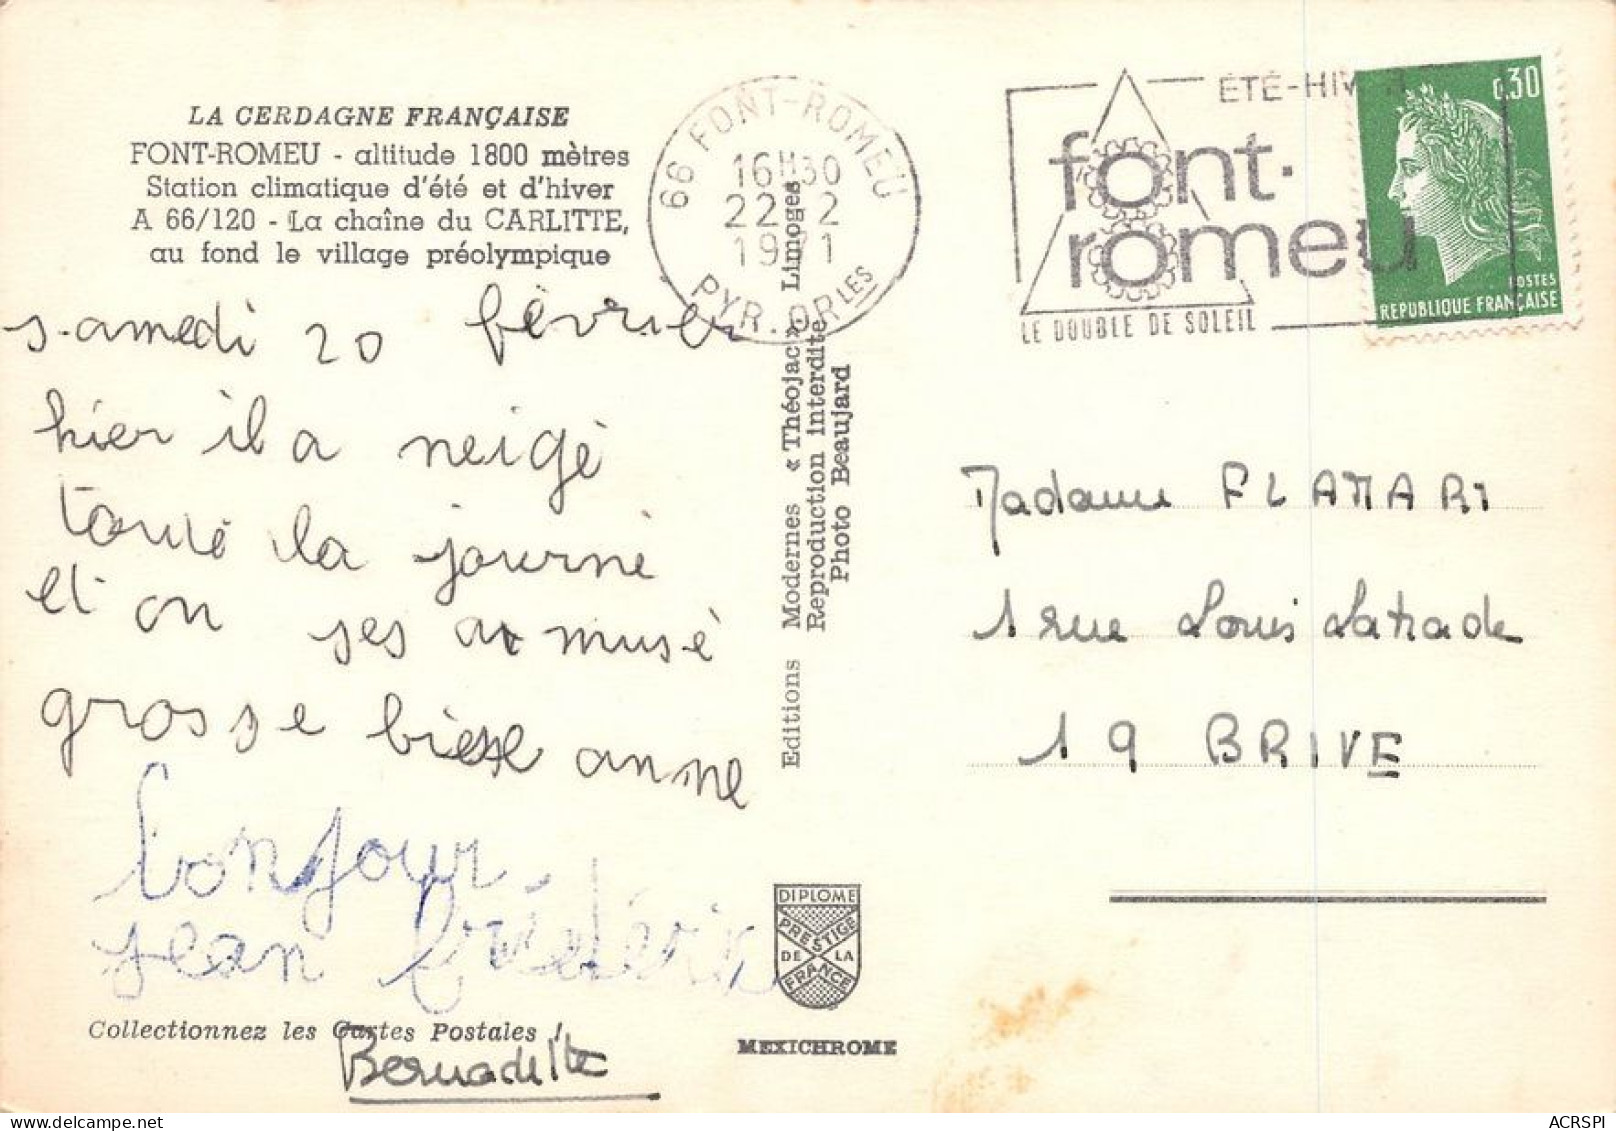 LA CERDAGNE FRANÇAISE
FONT-ROMEU - altitude 1800 mètres
Station climatique d'été et d'hiver
A 66/120 - La chaîne du CARLITTE,
au fond le village préolympique
samedi 20 février
hier il a neigé
touté la journé
et on ses amusé
grosse bise anne
bonjour.
jean frédéric
Collectionnez les Cartes Postales !
Bernadette
66 FONT-ROMEU
16H30
22-2
1971
PYR.ORLES
Editions Modernes « Théojac » Limoges
Reproduction interdite
Photo Beaujard
DIPLOME
PRESTIGE
DE LA
FRANCE
MEXICHROME
ÉTÉ-HIVER
font-
romeu
LE DOUBLE DE SOLEIL
0,30
POSTES
REPUBLIQUE FRANÇAISE
Madame FLAMARY
1 rue Louis Latrade
19 BRIVE
ACRSPI